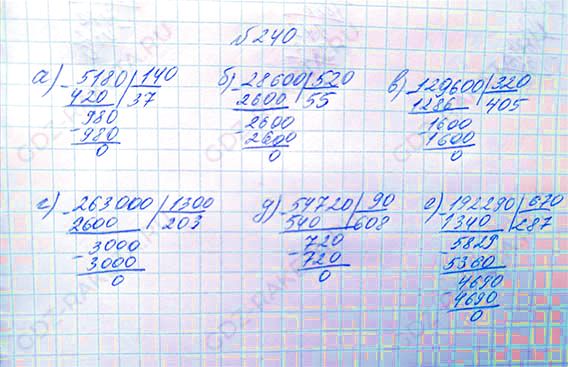 №240
а) - 5180 | 140 б) - 28600 | 520 в) - 129600 | 320
420 37 2600 55 1286 405
- 980 - 2600 - 1600
980 2600 1600
0 0 0
г) - 263000 | 1300 д) - 54720 | 90 е) - 192290 | 670
2600 203 540 608 1340 287
- 3000 - 720 - 5829
3000 720 5360
0 0 4690
- 4690
0